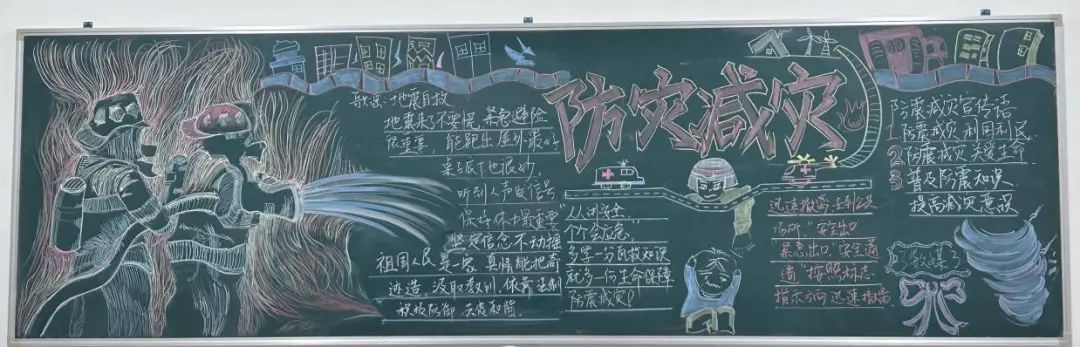 防灾减灾
歌谣:地震自救
地震来了不要慌 紧急避险
很重要 能跑出屋外最好
桌子底下也很妙
听到人声发信号
保存体力最重要
坚定信念不动摇
祖国人民是一家 真情能把奇
迹造 汲取教训 依靠
积极防御
人人讲安全
个个会应急
多学一为自救知识
就多一份生命保障
防震减灾
迅速撤离到公共
场所"安全出口
紧急出口""安全通
道"按照标志
指示方向迅速撤离
防震减灾宣传语
1. 防震减灾 利国利民
2. 防震减灾 关爱生命
3. 普及防震知识
提高减灾意识